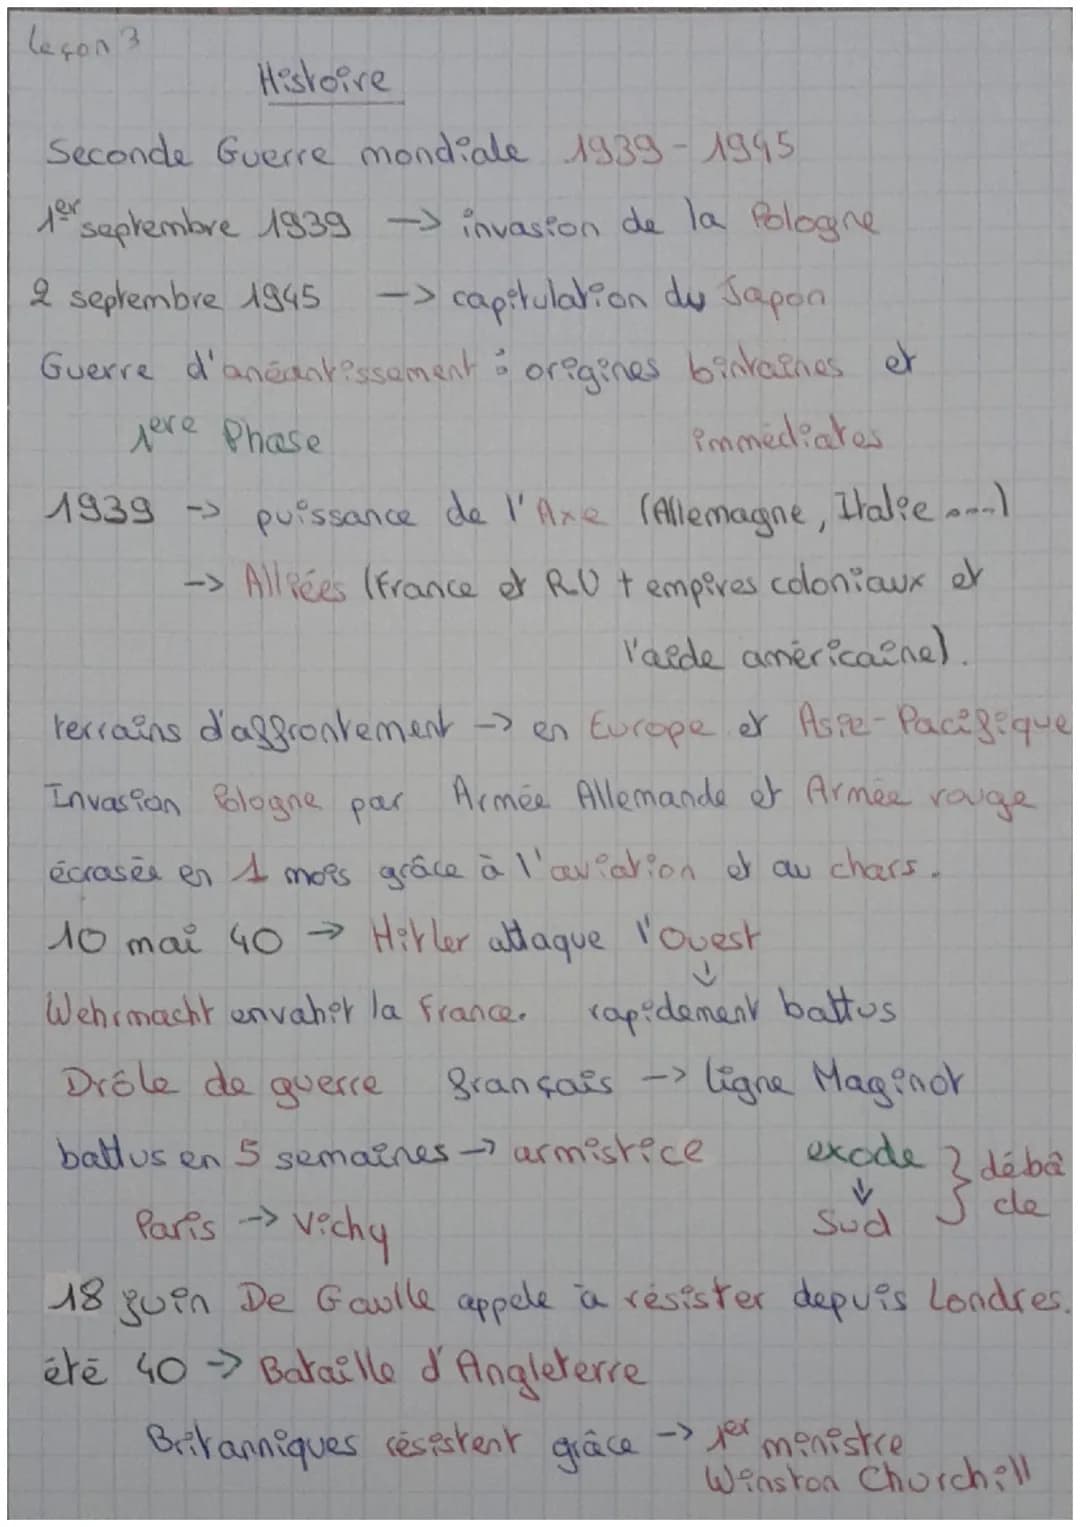 Leçon 3
Histoire
Seconde Guerre mondiale 1939-1945
1er septembre 1939 -> invasion de la Pologne
2 septembre 1945 -> capitulation du Japon
Guerre d'anéantissement : origines lointaines et
1ere Phase immédiates
1939 -> puissance de l'Axe (Allemagne, Italie ....)
-> Alliées (France et RU + empires coloniaux et
l'aide américaine).
terrains d'affrontement -> en Europe et Asie-Pacifique
Invasion Pologne par Armée Allemande et Armée rouge
écrasée en 1 mois grâce à l'aviation et au chars.
10 mai 40 -> Hitler attaque l'Ouest
↓
Wehrmacht envahit la France. rapidement battus
Drôle de guerre français -> ligne Maginot
battus en 5 semaines -> armistice exode } débâ
↓ de
Paris -> Vichy Sud
18 juin De Gaulle appele à résister depuis Londres.
été 40 -> Bataille d'Angleterre
Britanniques résistent grâce -> 1er ministre
Winston Churchill